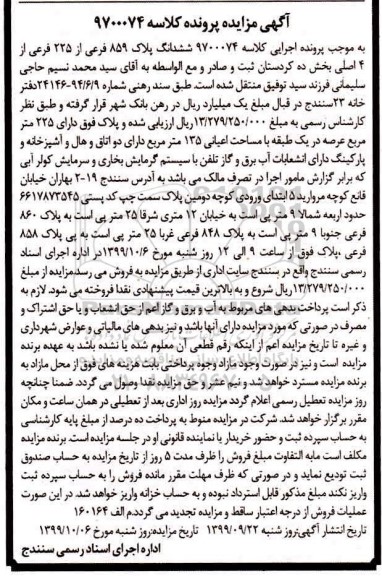 آگهی مزایده پرونده کلاسه ۹۷۰۰۰۷۴
به موجب پرونده اجرایی کلاسه ۹۷۰۰۰۷۴ ششدانگ پلاک ۸۵۹ فرعی از ۲۲۵ فرعی از
۴ اصلی بخش ده کردستان ثبت و صادر و مع الواسطه به آقای سید محمد نسیم حاجی
سلیمانی فرزند سید توفیق منتقل شده است. طبق سند رهنی شماره ۹۴/۶/۹-۲۴۱۴۶دفتر
خانه ۲۳سنندج در قبال مبلغ یک میلیارد ریال در رهن بانک شهر قرار گرفته و طبق نظر
کارشناس رسمی به مبلغ ۱۳/۲۷۹/۲۵۰/۰۰۰ریال ارزیابی شده و پلاک فوق دارای ۲۲۵ متر
مربع عرصه در یک طبقه با مساحت اعیانی ۱۳۵ متر مربع دارای دو اتاق و هال و آشپزخانه و
پارکینگ دارای انشعابات آب برق و گاز تلفن با سیستم گرمایش بخاری و سرمایش کولر آبی
که برابر گزارش مامور اجرا در تصرف مالک می باشد به آدرس سنندج ۱۹-۲ بهاران خیابان
قانع کوچه مروارید ۵ ابتدای ورودی کوچه دومین پلاک سمت چپ کد پستی ۶۶۱۷۸۷۳۵۴۵
حدود اربعه شمالا ۹ متر پی است به خیابان ۱۲ متری شرقا ۲۵ متر پی است به پلاک ۸۶۰
فرعی جنوبا ۹ متر پی است به پلاک ۸۴۸ فرعی غربا ۲۵ متر پی است به پی پلاک ۸۵۸
فرعی ،پلاک فوق از ساعت ۹ الی ۱۲ روز شنبه مورخ ۱۳۹۹/۱۰/۶در اداره اجرای اسناد
رسمی سنندج واقع در سنندج سایت اداری از طریق مزایده به فروش می رسد.مزایده از مبلغ
۱۳/۲۷۹/۲۵۰/۰۰۰ریال شروع و به بالاترین قیمت پیشنهادی نقدا فروخته می شود. لازم به
ذکر است پرداخت بدهی های مربوط به آب و برق و گاز اعم از حق انشعاب و یا حق اشتراک و
مصرف در صورتی که مورد مزایده دارای آنها باشد و نیز بدهی های مالیاتی و عوارض شهرداری
و غیره تا تاریخ مزایده اعم از اینکه رقم قطعی آن معلوم شده یا نشده باشد به عهده برنده
مزایده است و نیز در صورت وجود مازاد وجوه پرداختی بابت هزینه های فوق از محل مازاد به
برنده مزایده مسترد خواهد شد و نیم عشر و حق مزایده نقدا وصول می گردد. ضمنا چنانچه
روز مزایده تعطیل رسمی اعلام گردد مزایده روز اداری بعد از تعطیلی در همان ساعت و مکان
مقرر برگزار خواهد شد. شرکت در مزایده منوط به پرداخت ده درصد از مبلغ پایه کارشناسی
به حساب سپرده ثبت و حضور خریدار یا نماینده قانونی او در جلسه مزایده است. برنده مزایده
مکلف است مابه التفاوت مبلغ فروش را ظرف مدت ۵ روز از تاریخ مزایده به حساب صندوق
ثبت تودیع نماید و در صورتی که ظرف مهلت مقرر مانده فروش را به حساب سپرده ثبت
واریز نکند مبلغ مذکور قابل استرداد نبوده و به حساب خزانه واریز خواهد شد. در این صورت
عملیات فروش از درجه اعتبار ساقط و مزایده تجدید می گردد.م الف ۱۶۰۱۶۴
تاریخ انتشار آگهی:روز شنبه ۱۳۹۹/۰۹/۲۲ تاریخ مزایده:روز شنبه مورخ ۱۳۹۹/۱۰/۰۶
اداره اجرای اسناد رسمی سنندج